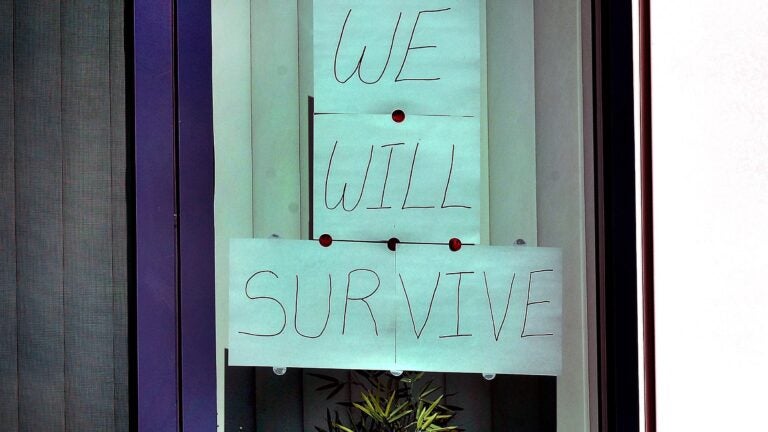 WE
WILL
SURVIVE